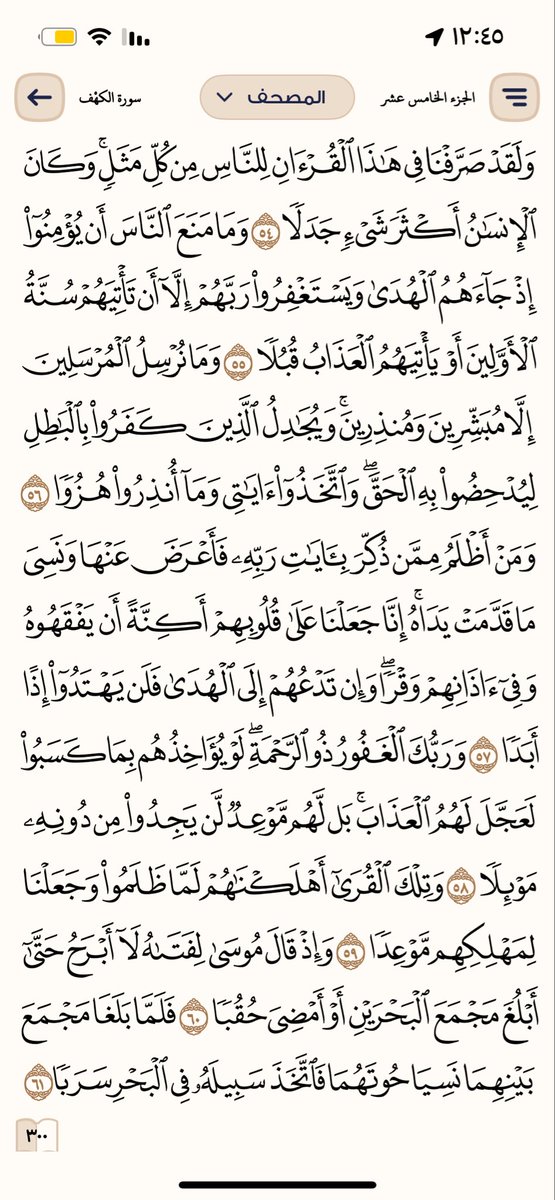 ١٢:٤٥
الجزء الخامس عشر
المصحف
سورة الكهف
وَلَقَدۡ صَرَّفۡنَا فِي هَٰذَا ٱلۡقُرۡءَانِ لِلنَّاسِ مِن كُلِّ مَثَلٖۚ وَكَانَ
ٱلۡإِنسَٰنُ أَكۡثَرَ شَيۡءٖ جَدَلٗا ٥٤ وَمَا مَنَعَ ٱلنَّاسَ أَن يُؤۡمِنُوٓاْ
إِذۡ جَآءَهُمُ ٱلۡهُدَىٰ وَيَسۡتَغۡفِرُواْ رَبَّهُمۡ إِلَّآ أَن تَأۡتِيَهُمۡ سُنَّةُ
ٱلۡأَوَّلِينَ أَوۡ يَأۡتِيَهُمُ ٱلۡعَذَابُ قُبُلٗا ٥٥ وَمَا نُرۡسِلُ ٱلۡمُرۡسَلِينَ
إِلَّا مُبَشِّرِينَ وَمُنذِرِينَۚ وَيُجَٰدِلُ ٱلَّذِينَ كَفَرُواْ بِٱلۡبَٰطِلِ
لِيُدۡحِضُواْ بِهِ ٱلۡحَقَّۖ وَٱتَّخَذُوٓاْ ءَايَٰتِي وَمَآ أُنذِرُواْ هُزُوٗا ٥٦
وَمَنۡ أَظۡلَمُ مِمَّن ذُكِّرَ بِـَٔايَٰتِ رَبِّهِۦ فَأَعۡرَضَ عَنۡهَا وَنَسِيَ
مَا قَدَّمَتۡ يَدَاهُۚ إِنَّا جَعَلۡنَا عَلَىٰ قُلُوبِهِمۡ أَكِنَّةً أَن يَفۡقَهُوهُ
وَفِيٓ ءَاذَانِهِمۡ وَقۡرٗاۖ وَإِن تَدۡعُهُمۡ إِلَى ٱلۡهُدَىٰ فَلَن يَهۡتَدُوٓاْ إِذًا
أَبَدٗا ٥٧ وَرَبُّكَ ٱلۡغَفُورُ ذُو ٱلرَّحۡمَةِۖ لَوۡ يُؤَاخِذُهُم بِمَا كَسَبُواْ
لَعَجَّلَ لَهُمُ ٱلۡعَذَابَۚ بَل لَّهُم مَّوۡعِدٞ لَّن يَجِدُواْ مِن دُونِهِۦ
مَوۡئِلٗا ٥٨ وَتِلۡكَ ٱلۡقُرَىٰٓ أَهۡلَكۡنَٰهُمۡ لَمَّا ظَلَمُواْ وَجَعَلۡنَا
لِمَهۡلِكِهِم مَّوۡعِدٗا ٥٩ وَإِذۡ قَالَ مُوسَىٰ لِفَتَىٰهُ لَآ أَبۡرَحُ حَتَّىٰٓ
أَبۡلُغَ مَجۡمَعَ ٱلۡبَحۡرَيۡنِ أَوۡ أَمۡضِيَ حُقُبٗا ٦٠ فَلَمَّا بَلَغَا مَجۡمَعَ
بَيۡنِهِمَا نَسِيَا حُوتَهُمَا فَٱتَّخَذَ سَبِيلَهُۥ فِي ٱلۡبَحۡرِ سَرَبٗا ٦١
٣٠٠